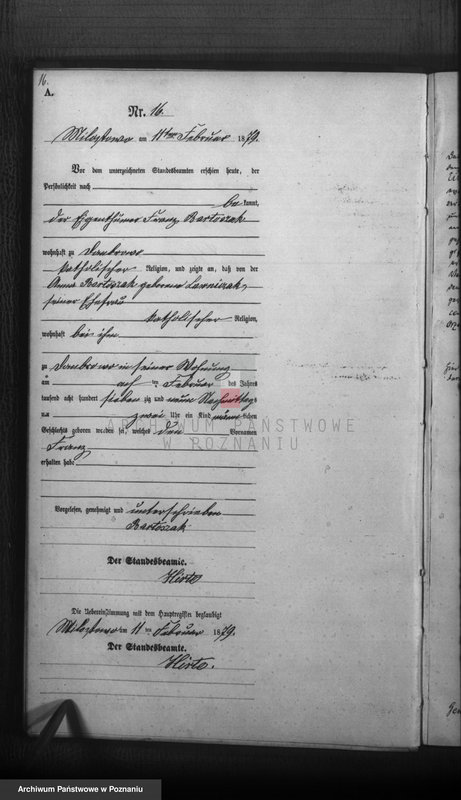 16.
A.
Nr. 16.
Milostowo am 11ten Februar 1879.
Vor dem unterzeichneten Standesbeamten erschien heute, der
Persönlichkeit nach
be kannt,
der Eigenthümer Franz Bartoszak
wohnhaft zu Dombrowo
katholischer Religion, und zeigte an, daß von der
Anna Bartoszak geborene Lawniczak,
seiner Ehefrau
katholischer Religion,
wohnhaft bei ihm
zu Dombrowo in seiner Wohnung
am acht ten Februar des Jahres
tausend acht hundert sieben zig und neun Nachmittags
um zwei Uhr ein Kind männ lichen
Geschlechts geboren worden sei, welches den Vornamen
Franz
erhalten habe.
Vorgelesen, genehmigt und unterschrieben
Bartoszak
Der Standesbeamte.
Hirte
Die Uebereinstimmung mit dem Hauptregister beglaubigt
Milostowo am 11 ten Februar 1879.
Der Standesbeamte.
Hirte.
ARCHIWUM PAŃSTWOWE
W POZNANIU
Archiwum Państwowe w Poznaniu